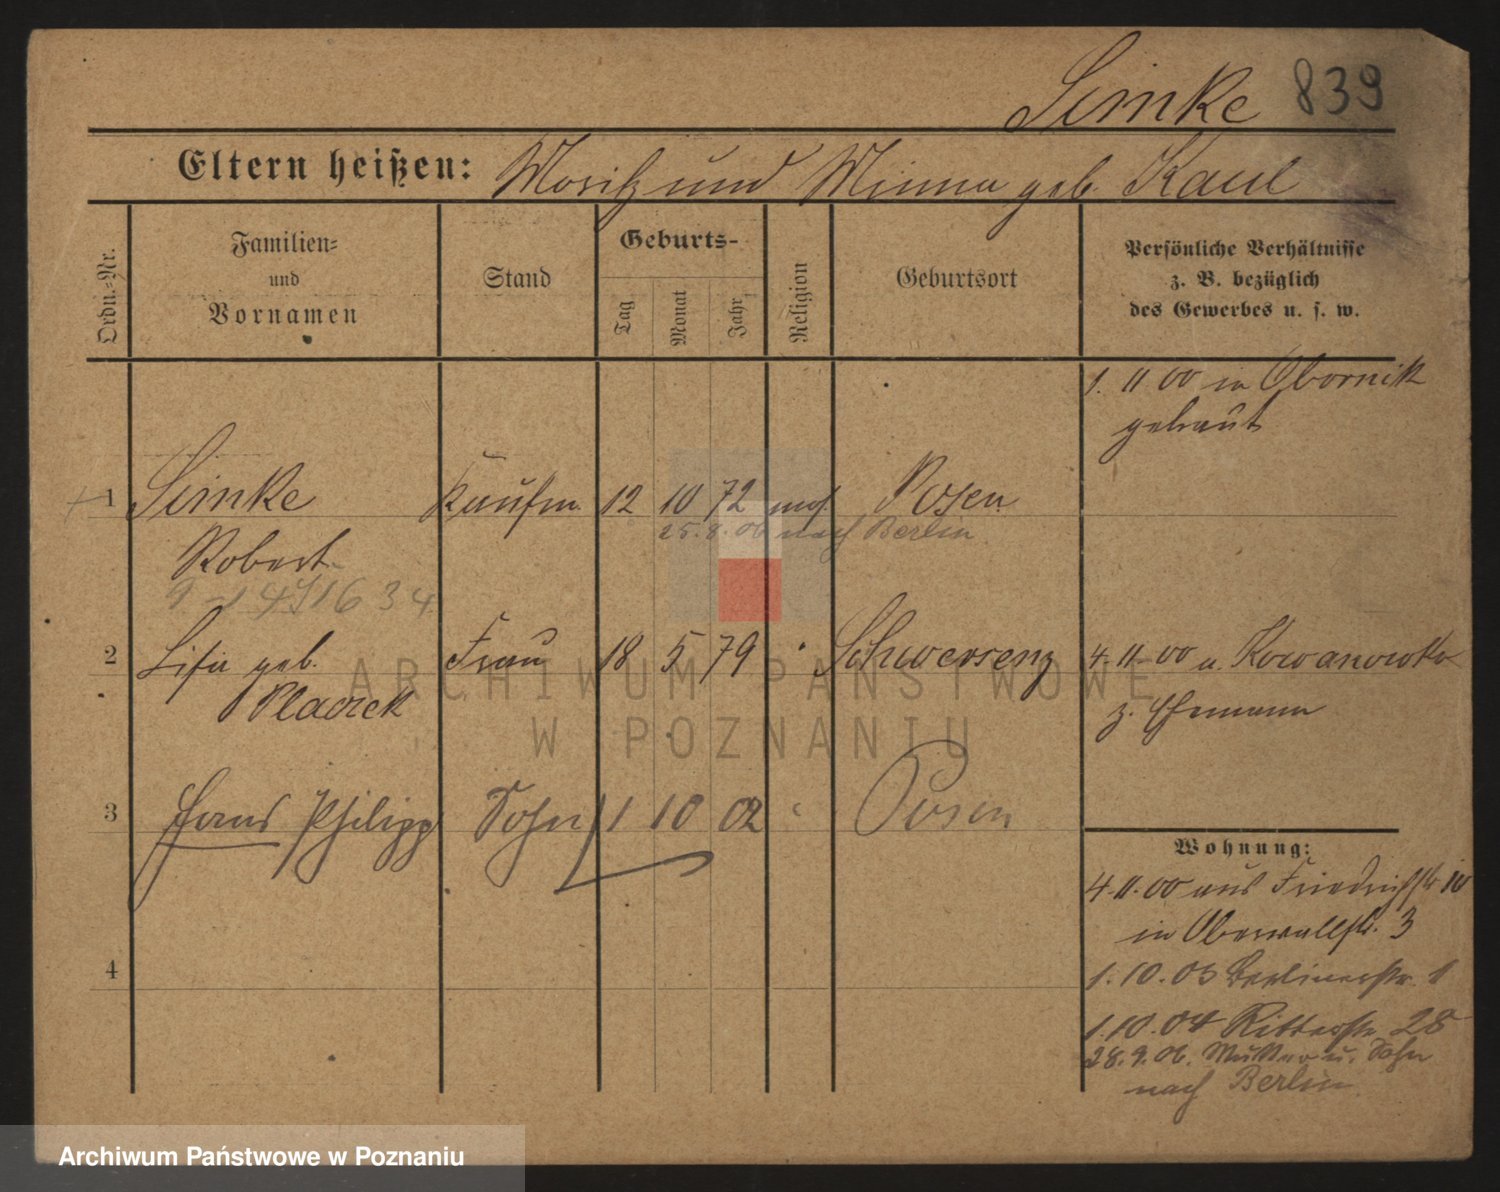 Simke 839
Eltern heißen: Moritz und Minna geb. Kaul
Ordn.-Nr.
Familien-
und
Vornamen
Stand
Geburts-
Tag
Monat
Jahr
Religion
Geburtsort
Persönliche Verhältnisse
z. B. bezüglich
des Gewerbes u. s. w.
1. 11 00 in Obornik
getraut
1 Simke Kaufm. 12 10 72 mos. Posen
25.8.06 nach Berlin
Robert
2 Lisa geb. Frau 18 5 79 " Schwersenz 4.11.00 v. Kowanowko
Placzek
z. Ehemann
3 Hans Philipp Sohn 1 10 02 " Posen
Wohnung:
4.11.00 aus Friedrichstr 10
in Oberwallstr. 3
1.10.03 Berlinerstr. 1
4
1.10.04 Ritterstr. 28
28.9.06. Mutter u. Sohn
nach Berlin
ARCHIWUM PAŃSTWOWE
W POZNANIU
Archiwum Państwowe w Poznaniu